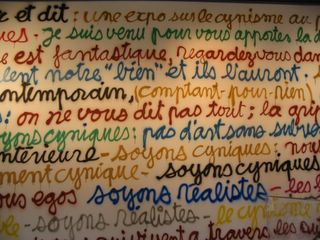 r et dit : une expo sur le cynisme au p
ues - Je suis venu pour vous apporter la d
e est fantastique regardez vous dan
lent notre "bien" et ils l'auront.
ontemporain, (comptant-pour-rien)
s : on ne vous dit pas tout ; la grip
oyons cyniques : pas d'art sans subve
ntérieure - soyons cyniques : nou
ment cynique - soyons cyniques
ous egos soyons réalistes - les
- soyons réalistes - le cynisme
vivent a travers les su